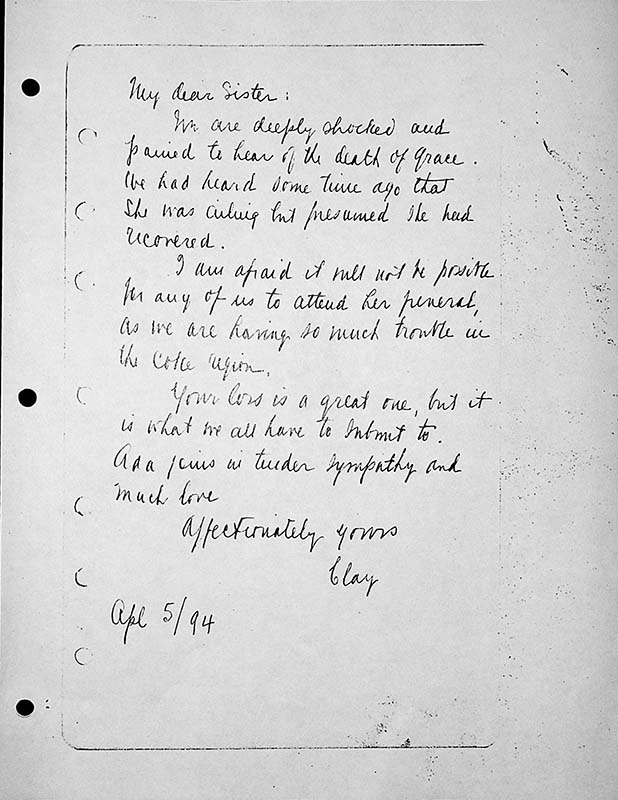 My dear Sister:
We are deeply shocked and
pained to hear of the death of Grace.
We had heard some time ago that
she was ailing but presumed she had
recovered.
I am afraid it will not be possible
for any of us to attend her funeral,
as we are having so much trouble in
the Coke region.
Your loss is a great one, but it
is what we all have to submit to.
Ada joins in tender sympathy and
much love
Affectionately yours
Clay
Apl 5/94